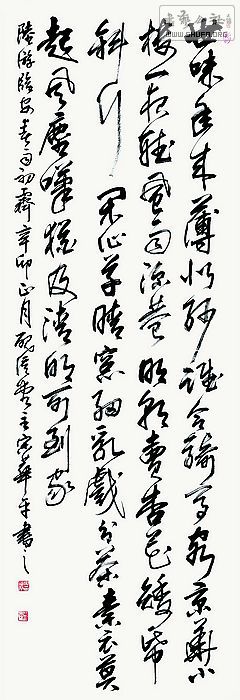 世味年来薄似纱谁令骑马客京华小
楼一夜听风雨深巷明朝卖杏花矮纸
斜行闲作草晴窗细乳戏分茶素衣莫
起风尘叹犹及清明可到家
陆游临安春雨初霁辛卯正月
书之
WWW.SHUFA.ORG